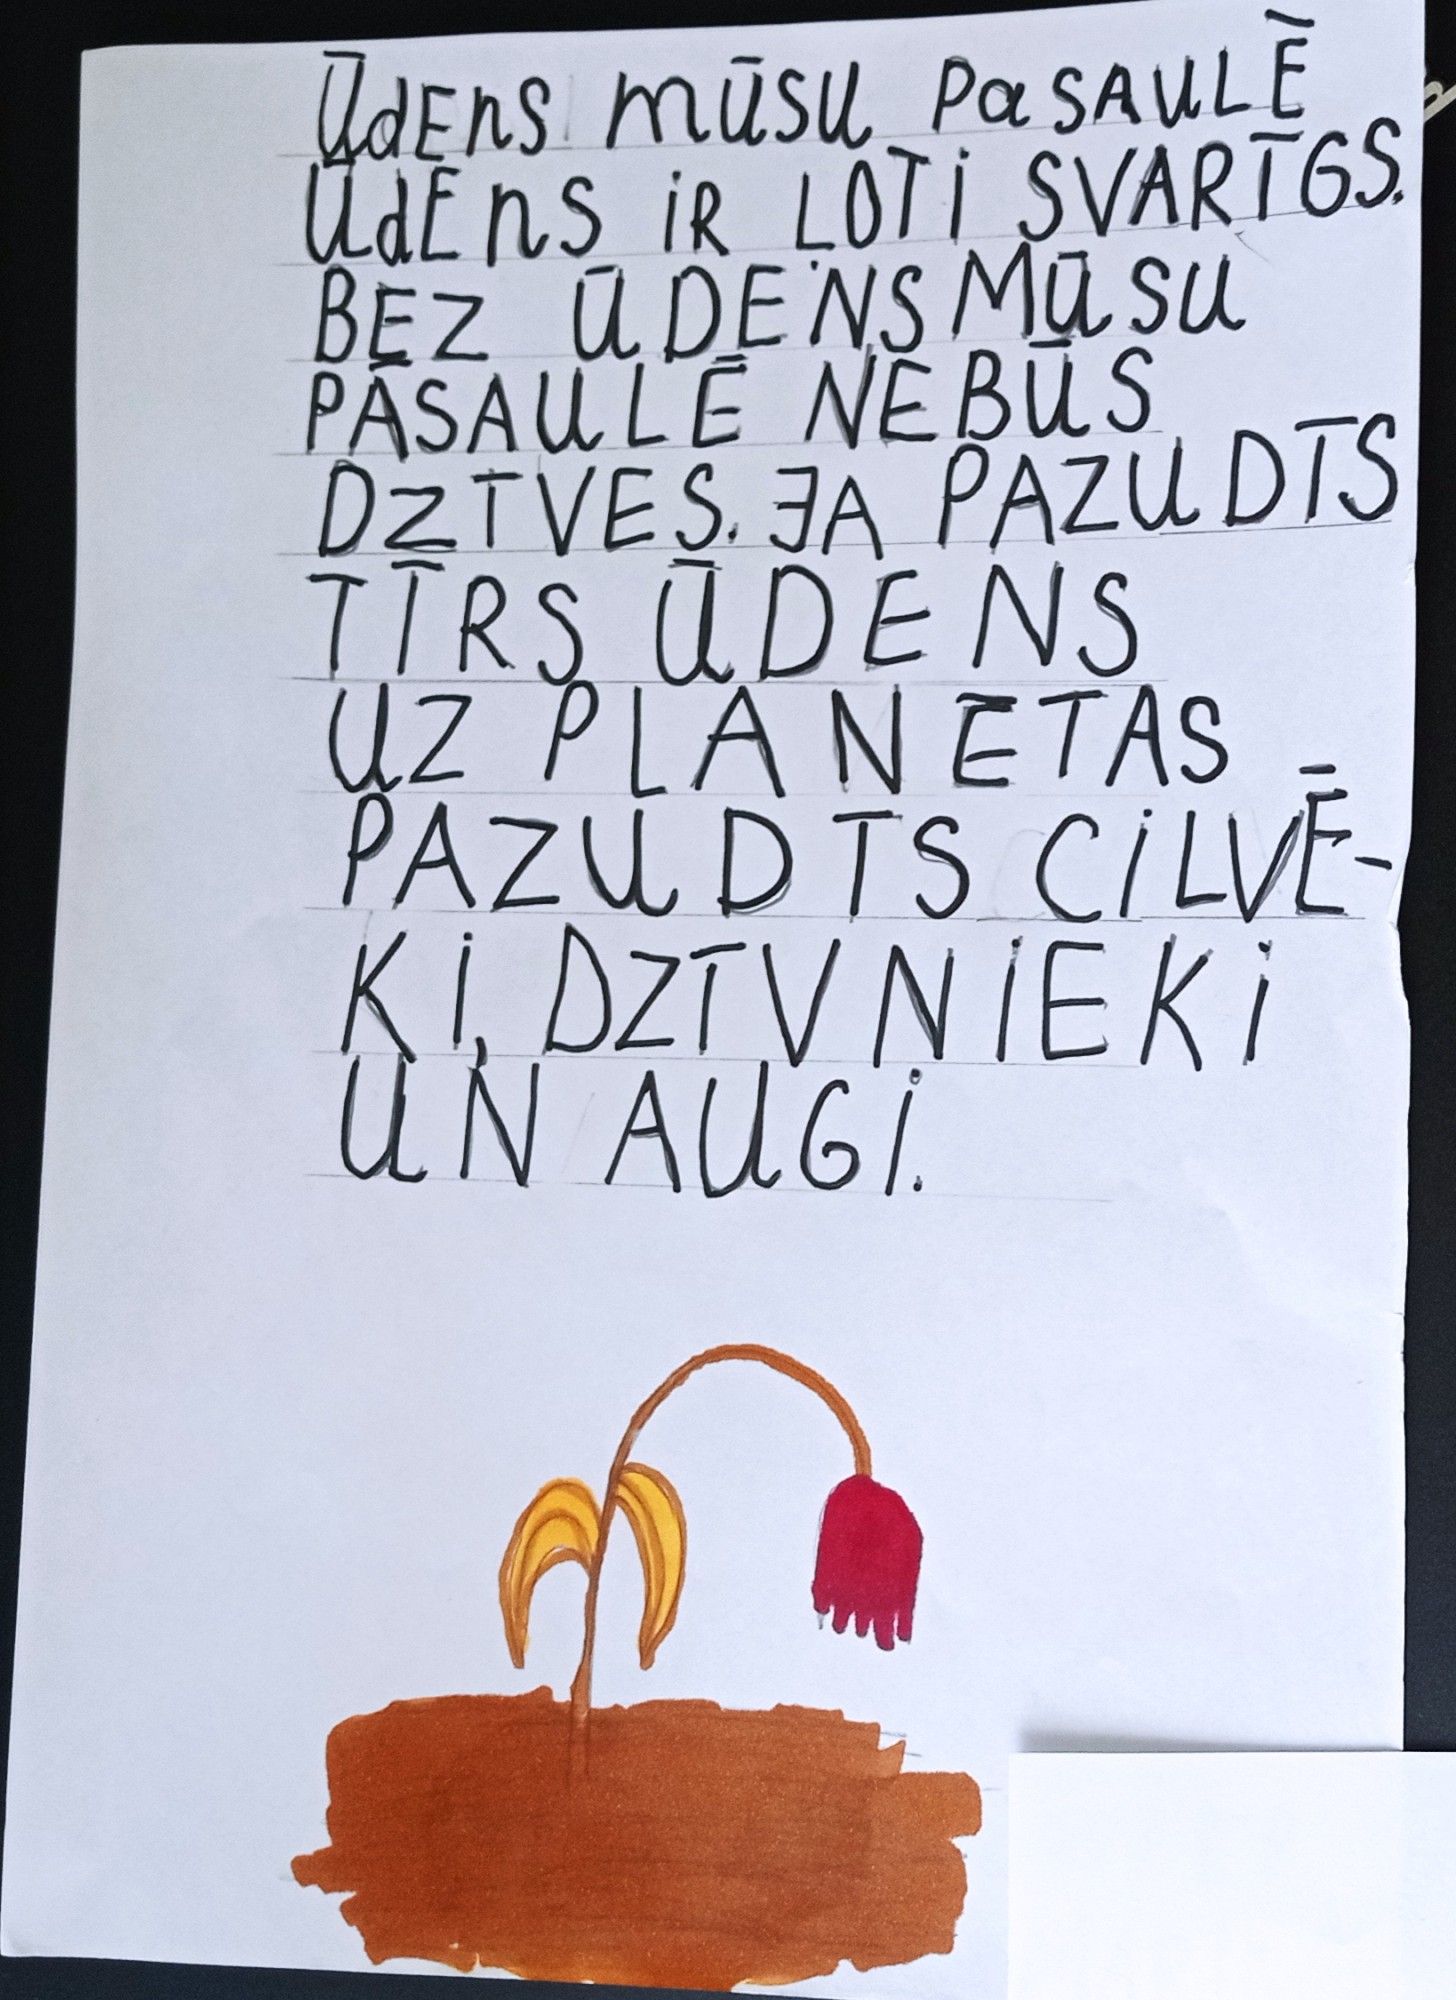 Ūdens mūsu pasaulē
Ūdens ir ļoti svarīgs.
BEZ ŪDENS MŪSU
PASAULĒ NEBŪS
DZTVES. JA PAZUDTS
TĪRS ŪDENS
UZ PLANĒTAS
PAZUDTS CILVĒ-
KI, DZĪVNIEKI
UN AUGI.